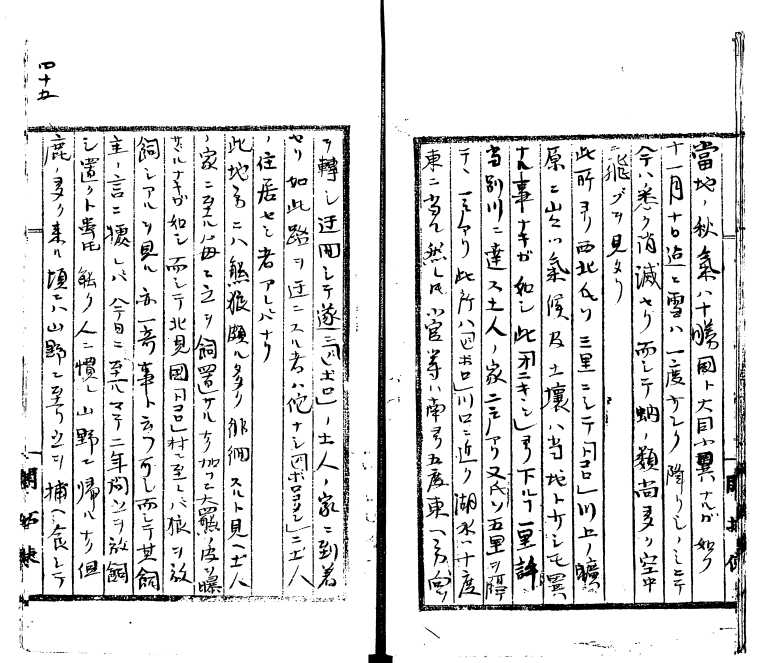 當地ノ秋氣ハ十勝國ト大同小異ナルガ如ク
十一月十日迠ニ雪ハ一度少シク降リシノミニテ
今ハ悉ク消滅セリ而シテ蚋ノ類尚多ク空中
ニ飛ブヲ見タリ
此所ヨリ西北凡ソ三里ニシテ「トコロ」川上ノ曠
原ニ出ツ氣候及土壤ハ当地ト少シモ異
ナル事ナキガ如シ此「オニキシ」ヨリ下ル丁一里許
当別川ニ達ス土人ノ家二戸アリ又凡ソ五里ヲ隔
テ、一戸アリ此所ハ「四ポロ」川口ニ近ク湖水ノ十度
東ニ当ル然レ氏小官等ハ南ヨリ五度東ヘ向ヒ
四十五
ヲ轉シ迂回シテ遂ニ「四ポロ」ノ土人ノ家ニ到着
セリ如此路ヲ迂ニスル者ハ佗ナシ「四ポロコタン」ニ土人
ノ住居セシ者アレバナリ
此地方ニハ熊狼頗ル多ク徘徊スルト見ヘ土人
ノ家ニ至ル毎ニ之ヲ飼置サルナク加フルニ大羆ノ皮ヲ曝
サヾルナキガ如シ而シテ北見國「トコロ」村ニ至レバ狼ヲ放
飼シアルヲ見ル亦一奇事ト云フ可シ而シテ其飼
主ノ言ニ據レバ今日ニ至ルマテ二年間之ヲ放飼
シ置クト雖モ能ク人ニ慣レ山野ニ帰ルナク但
鹿ノ多ク来ル頃ニハ山野ニ至リ之ヲ捕ヘ食シテ
開拓使